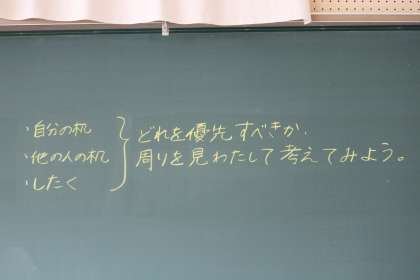 ・自分の机
・他の人の机
・したく
どれを優先すべきか、
周りを見わたして考えてみよう。